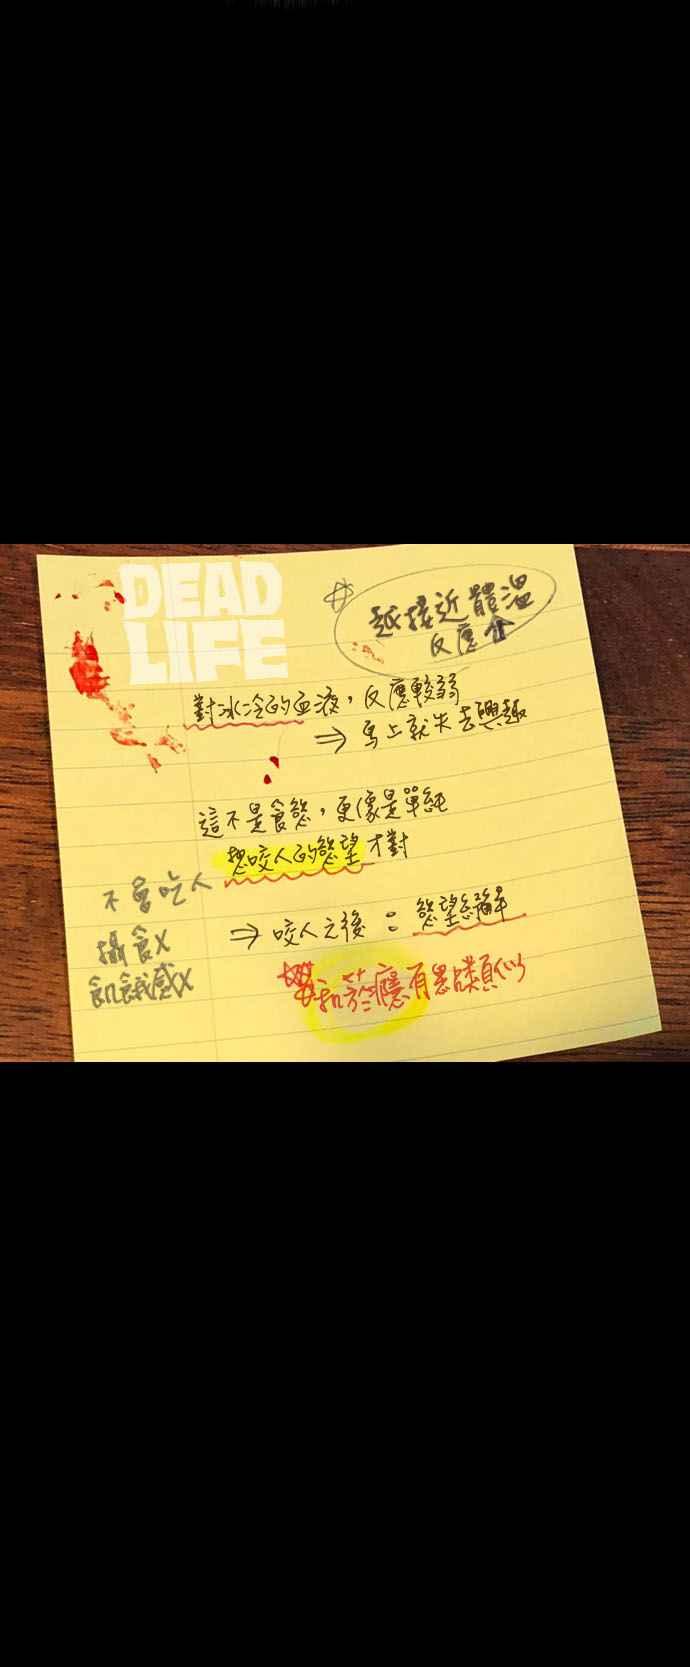 DEAD
LIFE
越接近體溫
反應↑
對冰冷的血液，反應較弱
⇒ 馬上就失去興趣
這不是食慾，更像是單純
想咬人的慾望才對
不會吃人
攝食X
飢餓感X
⇒ 咬人之後：慾望緩解
和菸癮有點類似